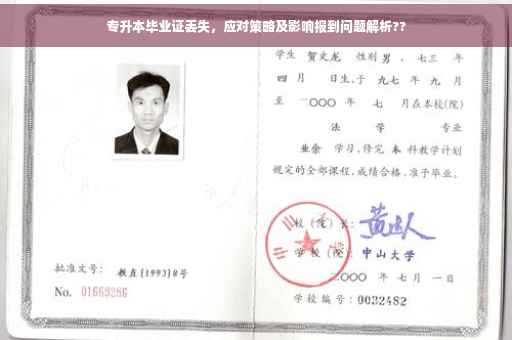 专升本毕业证丢失，应对策略及影响报到问题解析??
学生 贺文龙 性别 男，七三 年
四 月 日生，于 九七 年 九 月
至 二〇〇〇 年 七 月在本校(院)
法 学 专业
业余 学习，修完 本 科教学计划
规定的全部课程，成绩合格，准予毕业。
校(院)长:
学校(院): 中山大学
二〇〇〇 年 七 月 一 日
批准文号: 教直[1993]8号
No. 01669286
学校编号: 0032482